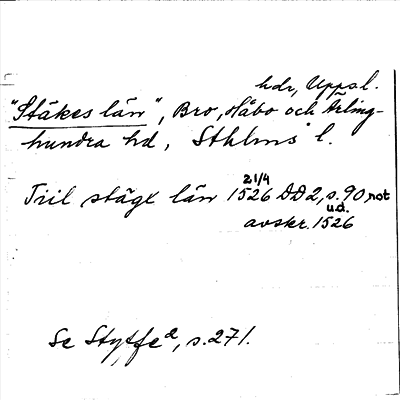 hdr, Uppsl.
"Stäkes län", Bro, Håbo och Ärling-
hundra hd, Sthlms l.
21/4
Tiil stägx län 1526 DD2, s. 90 not
u.d.
avskr. 1526
Se Styffe², s. 271.